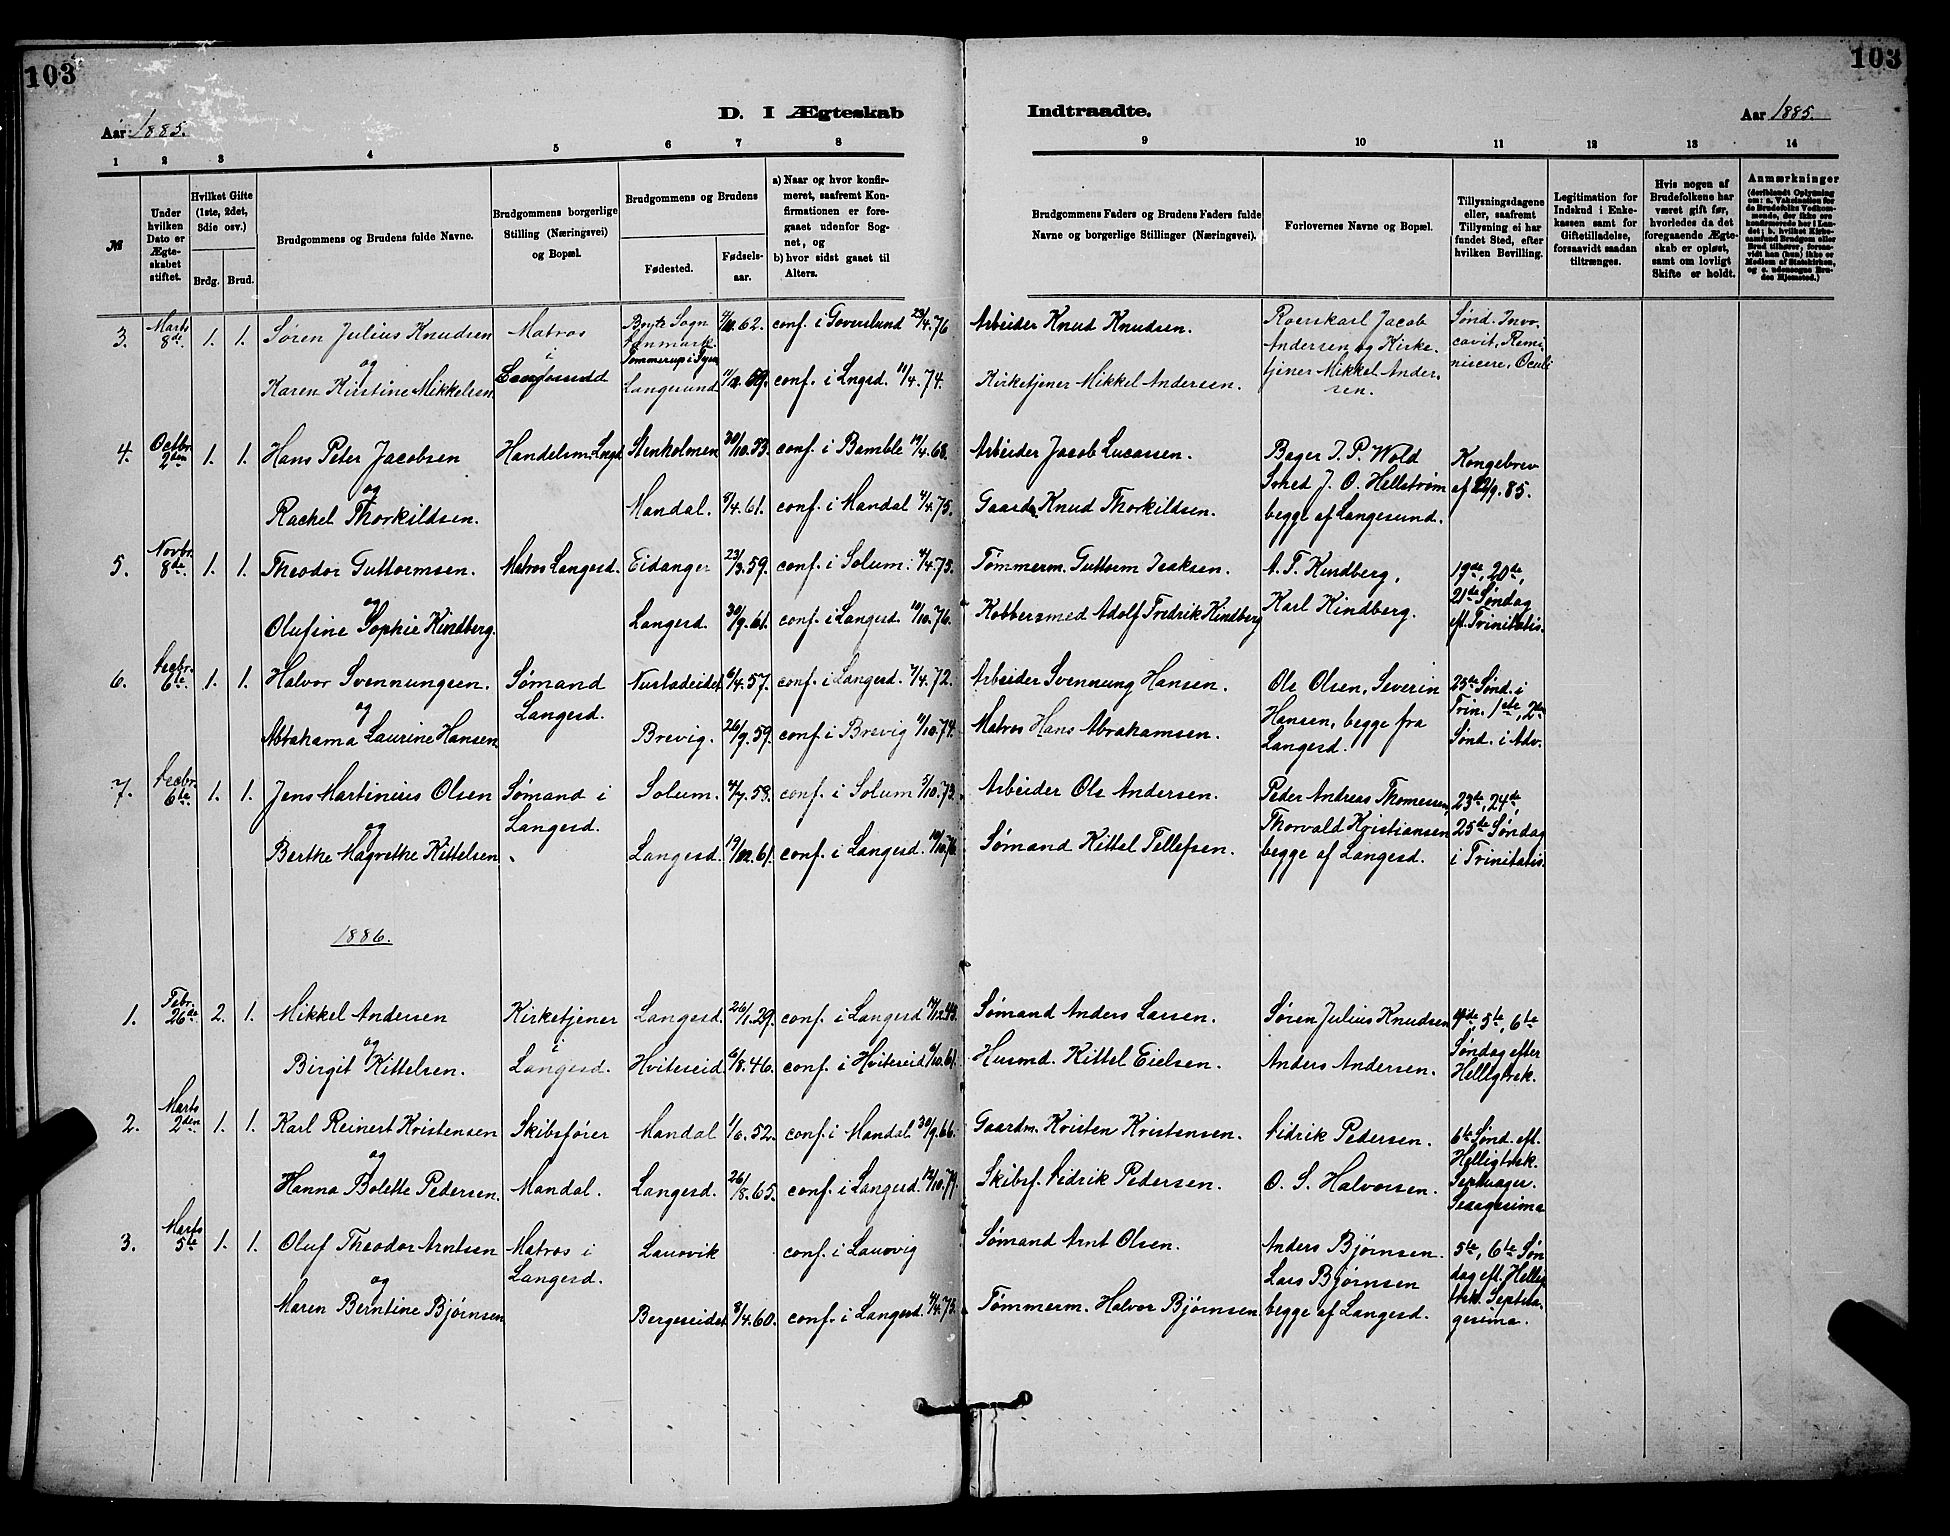 103
103
D. I Ægteskab Indtraadte.
Aar 1885.
Aar 1885.
1 2 3 4 5 6 7 8 9 10 11 12 13 14
№
Under hvilken Dato er Ægteskabet stiftet.
Hvilket Gifte (1ste, 2det, 3die osv.)
Brdg. Brud.
Brudgommens og Brudens fulde Navne.
Brudgommens borgerlige Stilling (Næringsvei) og Bopæl.
Brudgommens og Brudens
Fødested.
Fødselsaar.
a) Naar og hvor konfirmeret, saafremt Konfirmationen er foregaaet udenfor Sognet, og
b) hvor sidst gaaet til Alters.
Brudgommens Faders og Brudens Faders fulde Navne og borgerlige Stillinger (Næringsvei).
Forlovernes Navne og Bopæl.
Tillysningsdagene eller, saafremt Tillysning ei har fundet Sted, efter hvilken Bevilling.
Legitimation for Indskud i Enkekassen samt for Giftetilladelse, forsaavidt saadan tiltrænges.
Hvis nogen af Brudefolkene har været gift før, hvorledes da det foregaaende Ægteskab er opløst, samt om lovligt Skifte er holdt.
Anmærkninger
3. Marts 8de 1. 1. Søren Julius Knudsen Matros Sogn Danmark 62. conf. i 23/4.76 Arbeider Knud Knudsen. Roerskarl Jacob Sønd. Invo-
og i Tommerup i Fyen Andersen og Kirke- cavit, Remi-
Karen Kirstine Mikkelsen Langesund Langesund 59. conf. i Lngsd. 11/4.74. Kirketjener Mikkel Andersen. tjener Mikkel Ander- niscere, Oculi
sen.
4. Octbr. 2den 1. 1. Hans Peter Jacobsen Handelsm. Lngsd. Stenholmen 30/10.53. conf. i Bamble 19/4.68. Arbeider Jacob Lucassen. Bager J. P. Wold Kongebrev
og J. O. Hellstrøm af 22/9.85.
Rachel Thorkildsen. Mandal. 8/4.61. conf. i Mandal 4/4.75. Gaardm. Knud Thorkildsen. begge af Langesund.
5. Novbr. 8de 1. 1. Theodor Guttormsen. Matros Langesd. Eidanger 23/3.59. conf. i Solum. 4/4.75. Tømmerm. Guttorm Isaksen. A. F. Kindberg, 19de, 20de,
og 21de Søndag
Olufine Sophie Kindberg. Langesd. 30/9.61. conf. i Langesd. 10/10.76. Kobbersmed Adolf Fredrik Kindberg Karl Kindberg. eft. Trinitatis.
6. Decbr. 6te 1. 1. Halvor Svennungsen. Sømand Nustadeidet 6/4.57. conf. i Langesd. 7/4.72. Arbeider Svennung Hansen. Ole Olsen, Severin 25de Sønd. i
og Langesd. Hansen, begge fra Trin. 1ste, 2den
Abrahama Laurine Hansen Brevig. 26/9.59. conf. i Brevig 11/10.74. Matros Hans Abrahamsen. Langesd. Sønd. i Adv.
7. Decbr. 6te 1. 1. Jens Martinius Olsen Sømand i Solum. 4/7.58. conf. i Solum 5/10.73. Arbeider Ole Andersen. Peder Andreas Thomessen, 23de, 24de,
og Langesd. Thorvald Kristiansen 25de Søndag
Berthe Magrethe Kittelsen Langesd. 19/12.61. conf. i Langesd. 10/10.76. Sømand Kittel Tellefsen. begge af Langesd. i Trinitatis.
1886.
1. Febr. 26de 2. 1. Mikkel Andersen Kirketjener Langesd. 26/1.29. conf. i Langesd Sømand Anders Larsen. Søren Julius Knudsen 4de, 5te, 6te
og i Søndag efter
Birgit Kittelsen. Langesd. Hviteseid 6/8.46. conf. i Hviteseid 6/10.61. Husmd. Kittel Eielsen. Anders Andersen. Helligtrek.
2. Marts 2den 1. 1. Karl Reinert Kristensen Skibsfører Mandal 1/6.52. conf. i Mandal 30/9.66. Gaardm. Kristen Kristensen. Didrik Pedersen. 6te Sønd. eft.
og Helligtrek.
Hanna Bolette Pedersen. Mandal. Langesd. 26/8.65. conf. i Langesd. 12/10.79. Skibsf. Didrik Pedersen. O. S. Halvorsen. Septuages.
Sexagesima
3. Marts 5te 1. 1. Oluf Theodor Arntsen Matros i Laurvik conf. i Laurvig Sømand Arnt Olsen. Anders Bjørnsen. 5te, 6te Søn-
og Langesd. Lars Bjørnsen dag eft. Hellig
Maren Berntine Bjørnsen Bergeseidet 8/4.60. conf. i Langesd. 4/4.75. Tømmerm. Halvor Bjørnsen begge af Langesd. trek. Septua-
gesima.